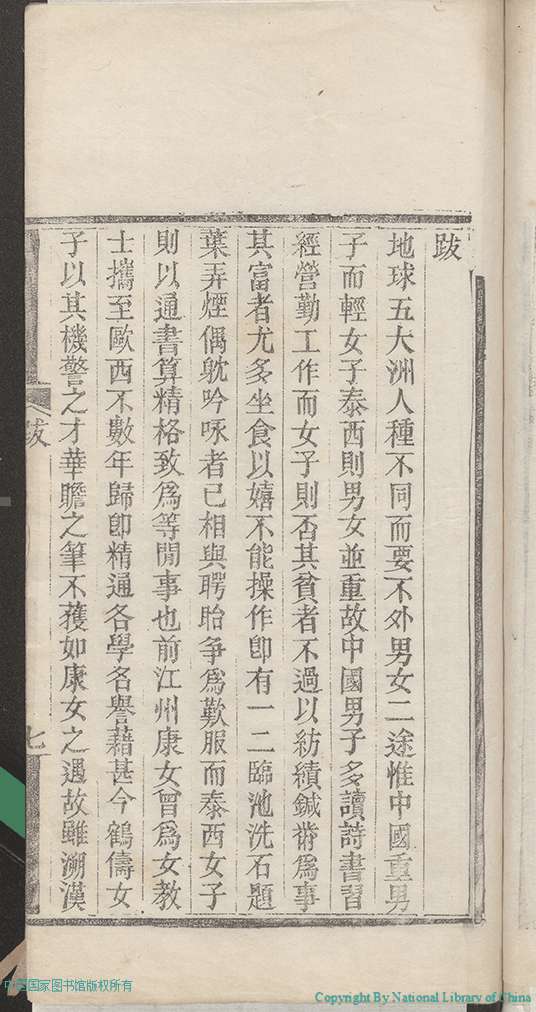 跋
地球五大洲人種不同而要不外男女二途惟中國重男
子而輕女子泰西則男女並重故中國男子多讀詩書習
經營勤工作而女子則否其貧者不過以紡績鍼黹爲事
其富者尤多坐食以嬉不能操作卽有一二臨池洗石題
葉弄煙偶躭吟咏者已相與聘眙爭爲歎服而泰西女子
則以通書算精格致爲等閒事也前江州康女曾爲女教
士攜至歐西不數年歸卽精通各學名譽藉甚今鶴儔女
子以其機警之才華贍之筆不獲如康女之遇故雖溯漢
跋
七
中国国家图书馆版权所有
Copyright By National Library of China